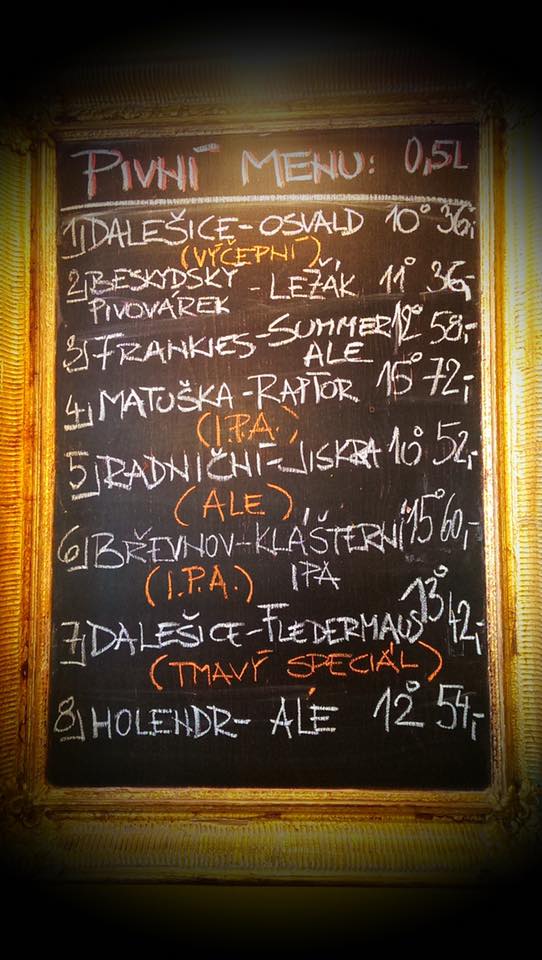 PIVNÍ MENU: 0,5L
1) DALEŠICE-OSVALD 10° 36,-
(VÝČEPNÍ)
2) BESKYDSKÝ PIVOVÁREK - LEŽÁK 11° 36,-
3) FRANKIES-SUMMER ALE 12° 58,-
4) MATUŠKA-RAPTOR 15° 72,-
(I.P.A.)
5) RADNIČNÍ-JISKRA 10° 52,-
(ALE)
6) BŘEVNOV-KLÁŠTERNÍ 15° 60,-
(I.P.A.) IPA
7) DALEŠICE-FLEDERMAUS 13° 42,-
(TMAVÝ SPECIÁL)
8) HOLENDR- ALE 12° 54,-